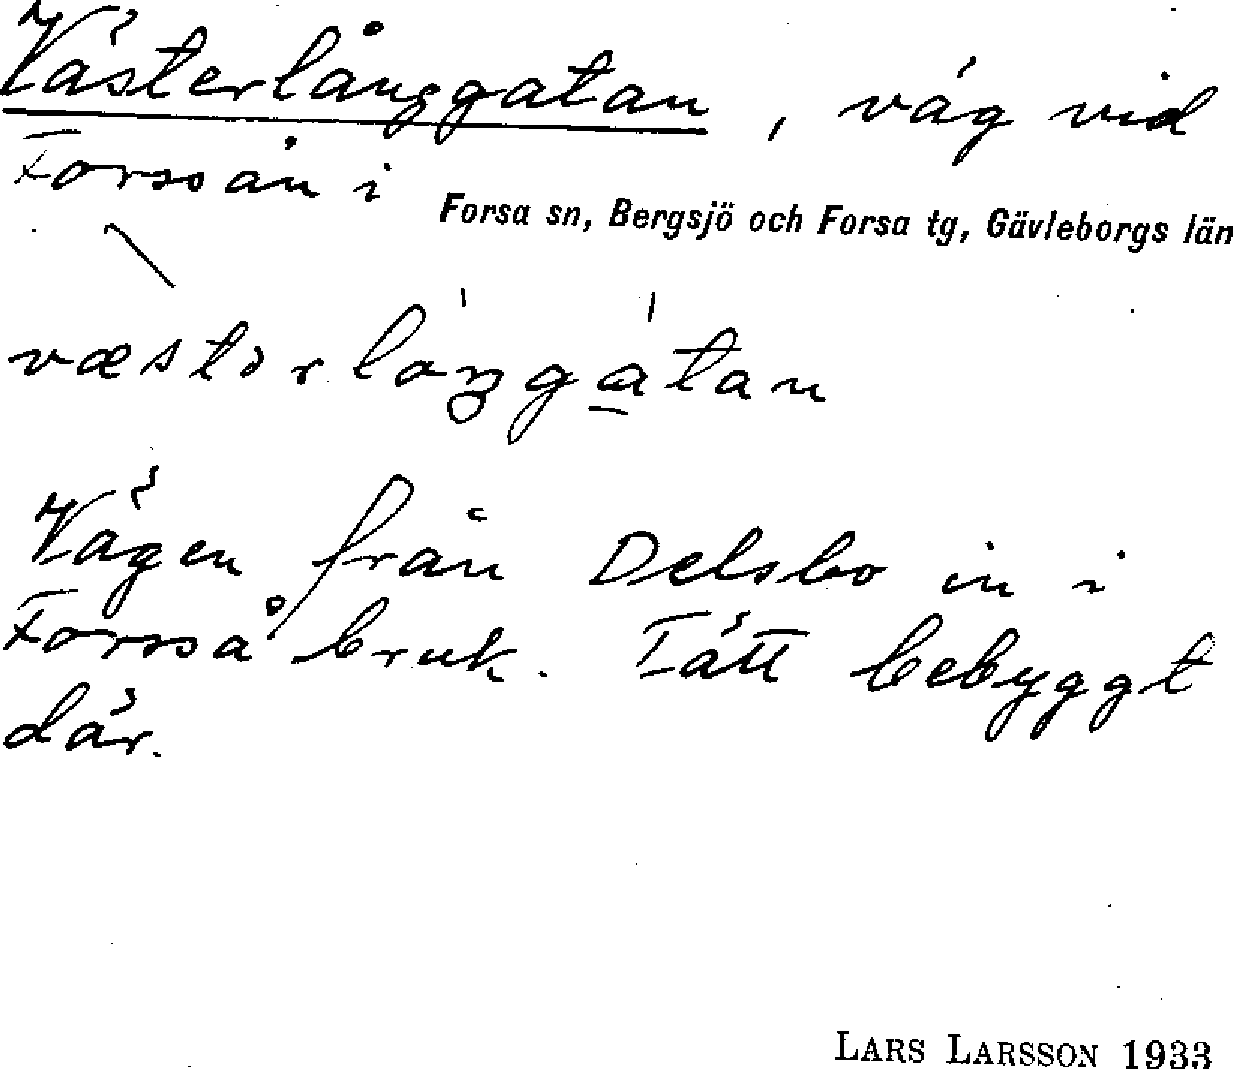 Västerlånggatan, väg vid
Forssån i Forsa sn, Bergsjö och Forsa tg, Gävleborgs län
Vägen från Delsbo in i
Forsså bruk. Tätt bebyggt
där.
LARS LARSSON 1933